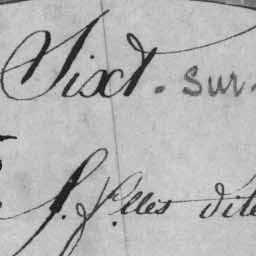 Sixt. sur.
S. J.lles dite